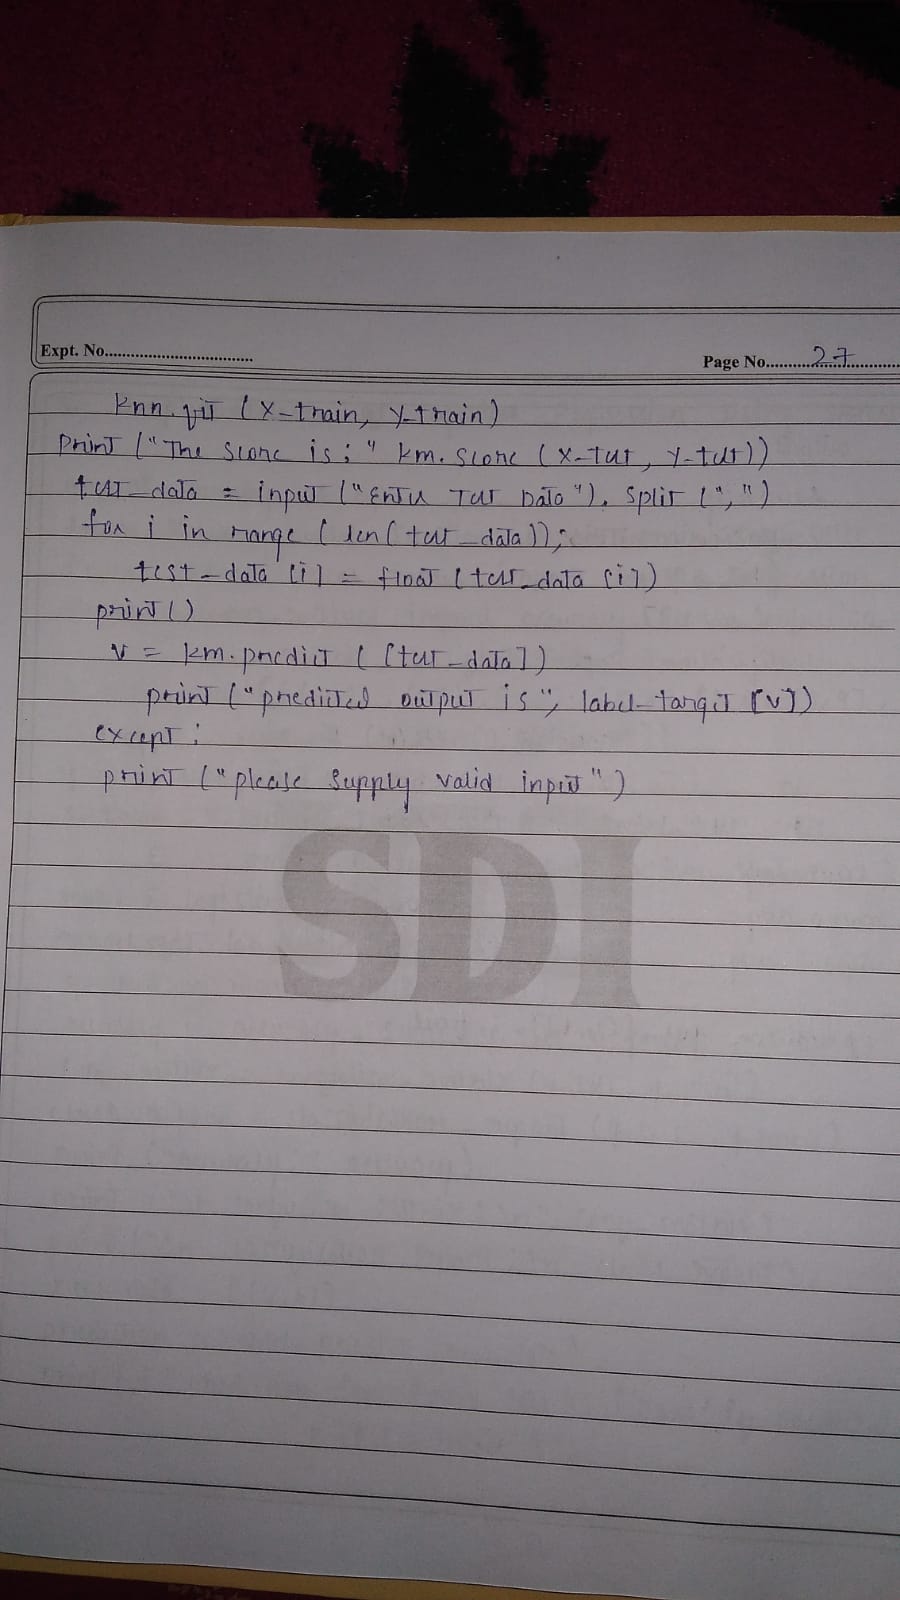 Expt. No.................................
Page No..........27..........
knn.fit (x-train, y-train)
print ("The score is:" km. score (x-test, y-test))
test_data = input ("Enter Test Data"). split (",")
for i in range (len(test_data)):
test_data [i] = float (test_data [i])
print()
v = km.predict ([test_data])
print ("predicted output is", label_target [v])
except:
print ("please supply valid input")
SDI